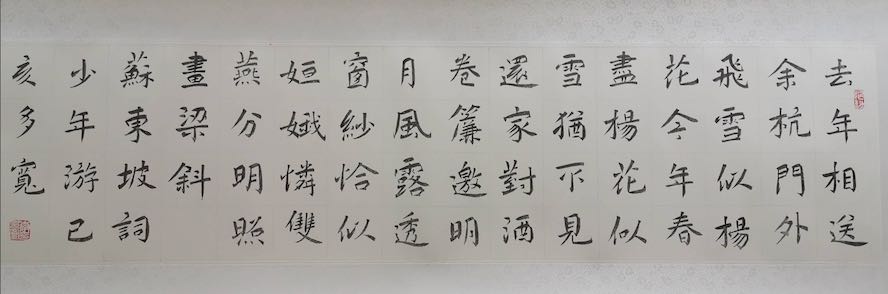 去年相送
余杭門外
飛雪似楊
花今年春
盡楊花似
雪猶不見
還家對酒
卷簾邀明
月風露透
窗紗恰似
姮娥憐雙
燕分明照
畫梁斜
蘇東坡詞
少年游己
亥多寬